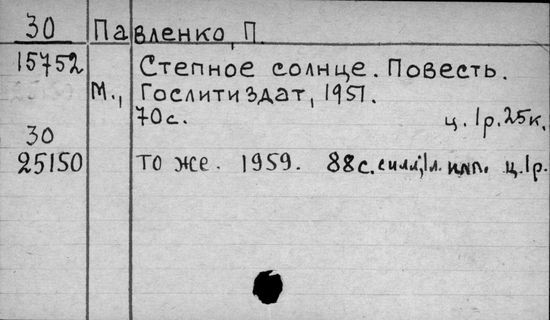 30 Павленко, П.
15752 Степное солнце. Повесть.
М., Гослитиздат, 1951.
70с. ц. 1р. 25к.
30
25150 то же. 1959. 88с. с илл.; 1л. илл. ц. 1р.